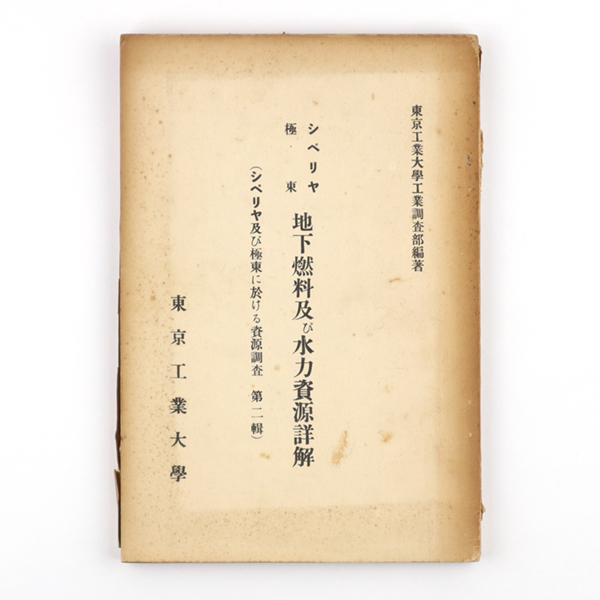 東京工業大學工業調査部編著
シベリヤ
極東
地下燃料及び水力資源詳解
(シベリヤ及び極東に於ける資源調査 第二輯)
東京工業大學